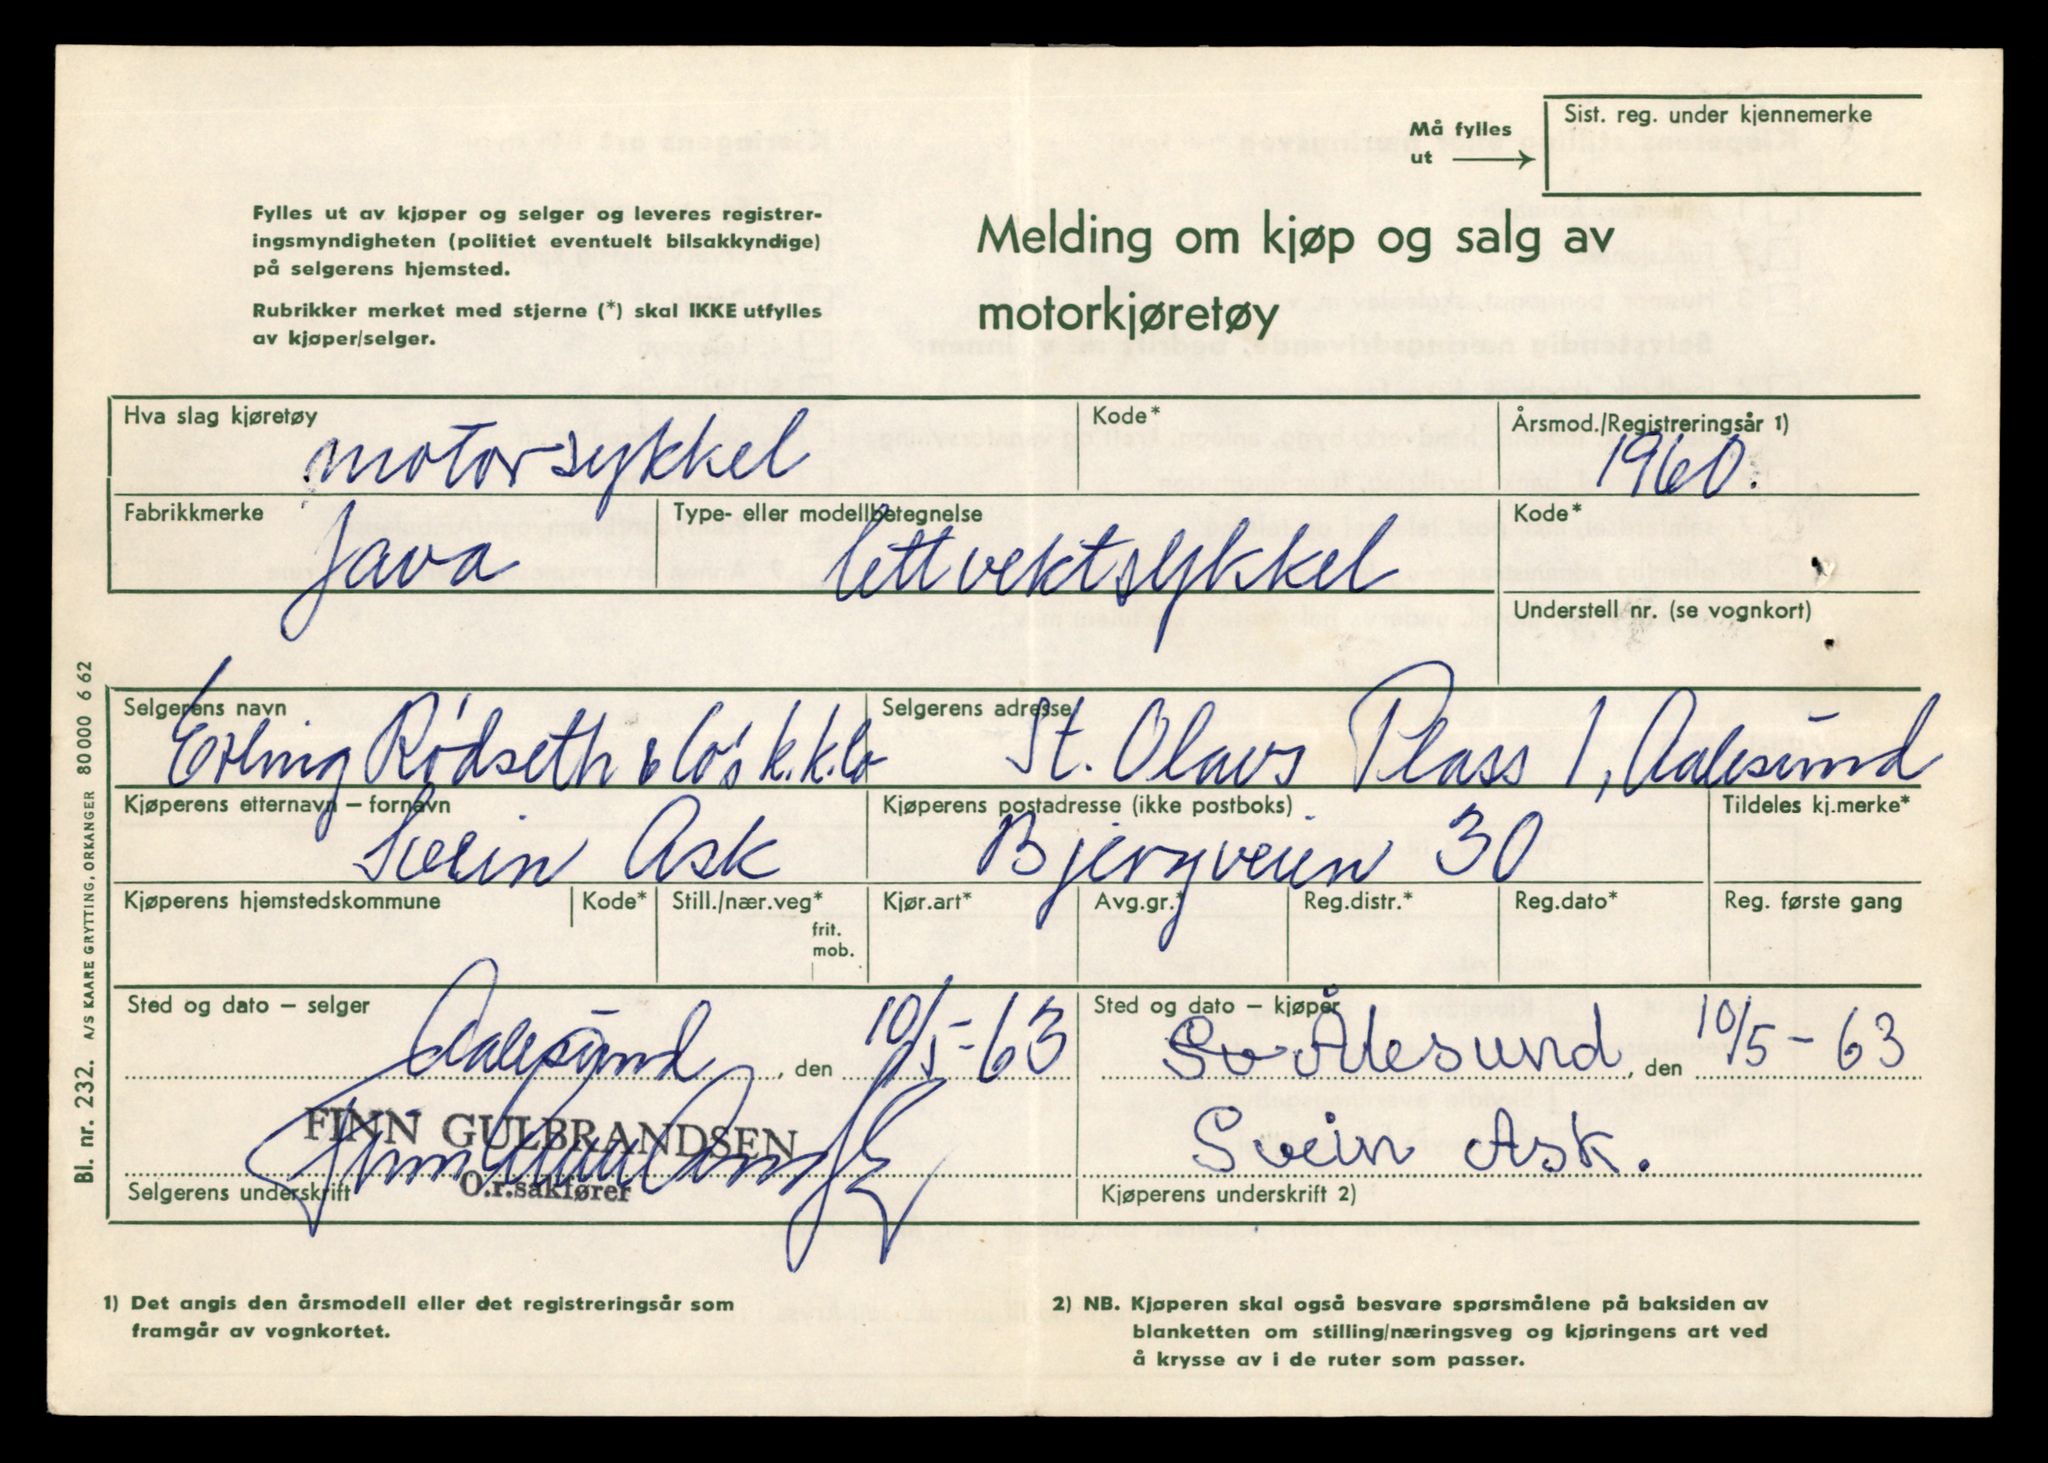 Må fylles
ut
Sist. reg. under kjennemerke
Fylles ut av kjøper og selger og leveres registrer-
ingsmyndigheten (politiet eventuelt bilsakkyndige)
på selgerens hjemsted.
Rubrikker merket med stjerne (*) skal IKKE utfylles
av kjøper/selger.
Melding om kjøp og salg av
motorkjøretøy
Hva slag kjøretøy
motorsykkel
Kode*
Årsmod./Registreringsår 1)
1960.
Fabrikkmerke
Java
Type- eller modellbetegnelse
lettvektsykkel
Kode*
Understell nr. (se vognkort)
Selgerens navn
Erling Rødseth & Co's k.k.bo
Selgerens adresse
St. Olavs Plass 1, Aalesund
Kjøperens etternavn – fornavn
Svein Ask
Kjøperens postadresse (ikke postboks)
Bjergveien 30
Tildeles kj.merke*
Kjøperens hjemstedskommune
Kode*
Still./nær.veg*
frit.
mob.
Kjør.art*
Avg.gr.*
Reg.distr.*
Reg.dato*
Reg. første gang
Sted og dato – selger
Aalesund, den 10/5-63
FINN GULBRANDSEN
O.r.sakfører
Selgerens underskrift
Sted og dato – kjøper
Sv Ålesund, den 10/5-63
Svein Ask.
Kjøperens underskrift 2)
1) Det angis den årsmodell eller det registreringsår som
framgår av vognkortet.
2) NB. Kjøperen skal også besvare spørsmålene på baksiden av
blanketten om stilling/næringsveg og kjøringens art ved
å krysse av i de ruter som passer.
Bl. nr. 232. A/S KAARE GRYTTING, ORKANGER 80000 6 62